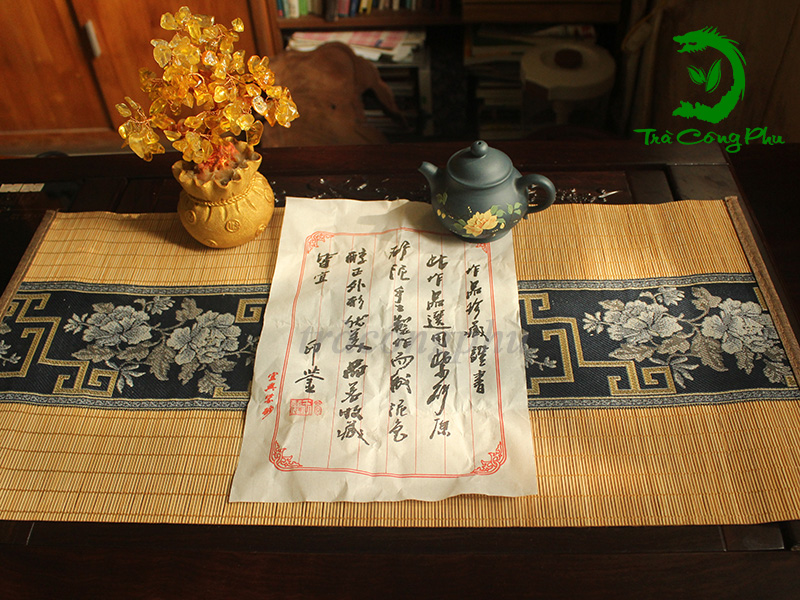 Trà Công Phu
作品珍藏證書
此作品選用紫砂原
礦泥手工製作而成泥色
正外形優美 收藏
印鉴
宜興紫砂
tracongphu